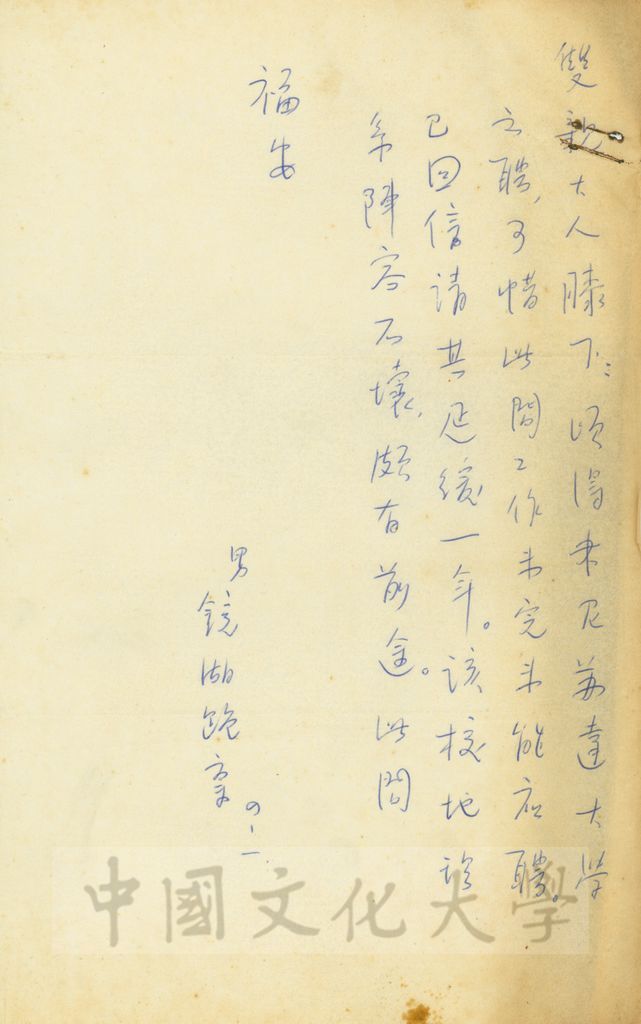 雙親大人膝下:頃得米尼蘇達大學
之聘,可惜此間工作未完未能應聘。
已回信請其延緩一年。該校地理
系陣容不壞,頗有前途。此問
福安
男鏡湖跪稟
中國文化大學